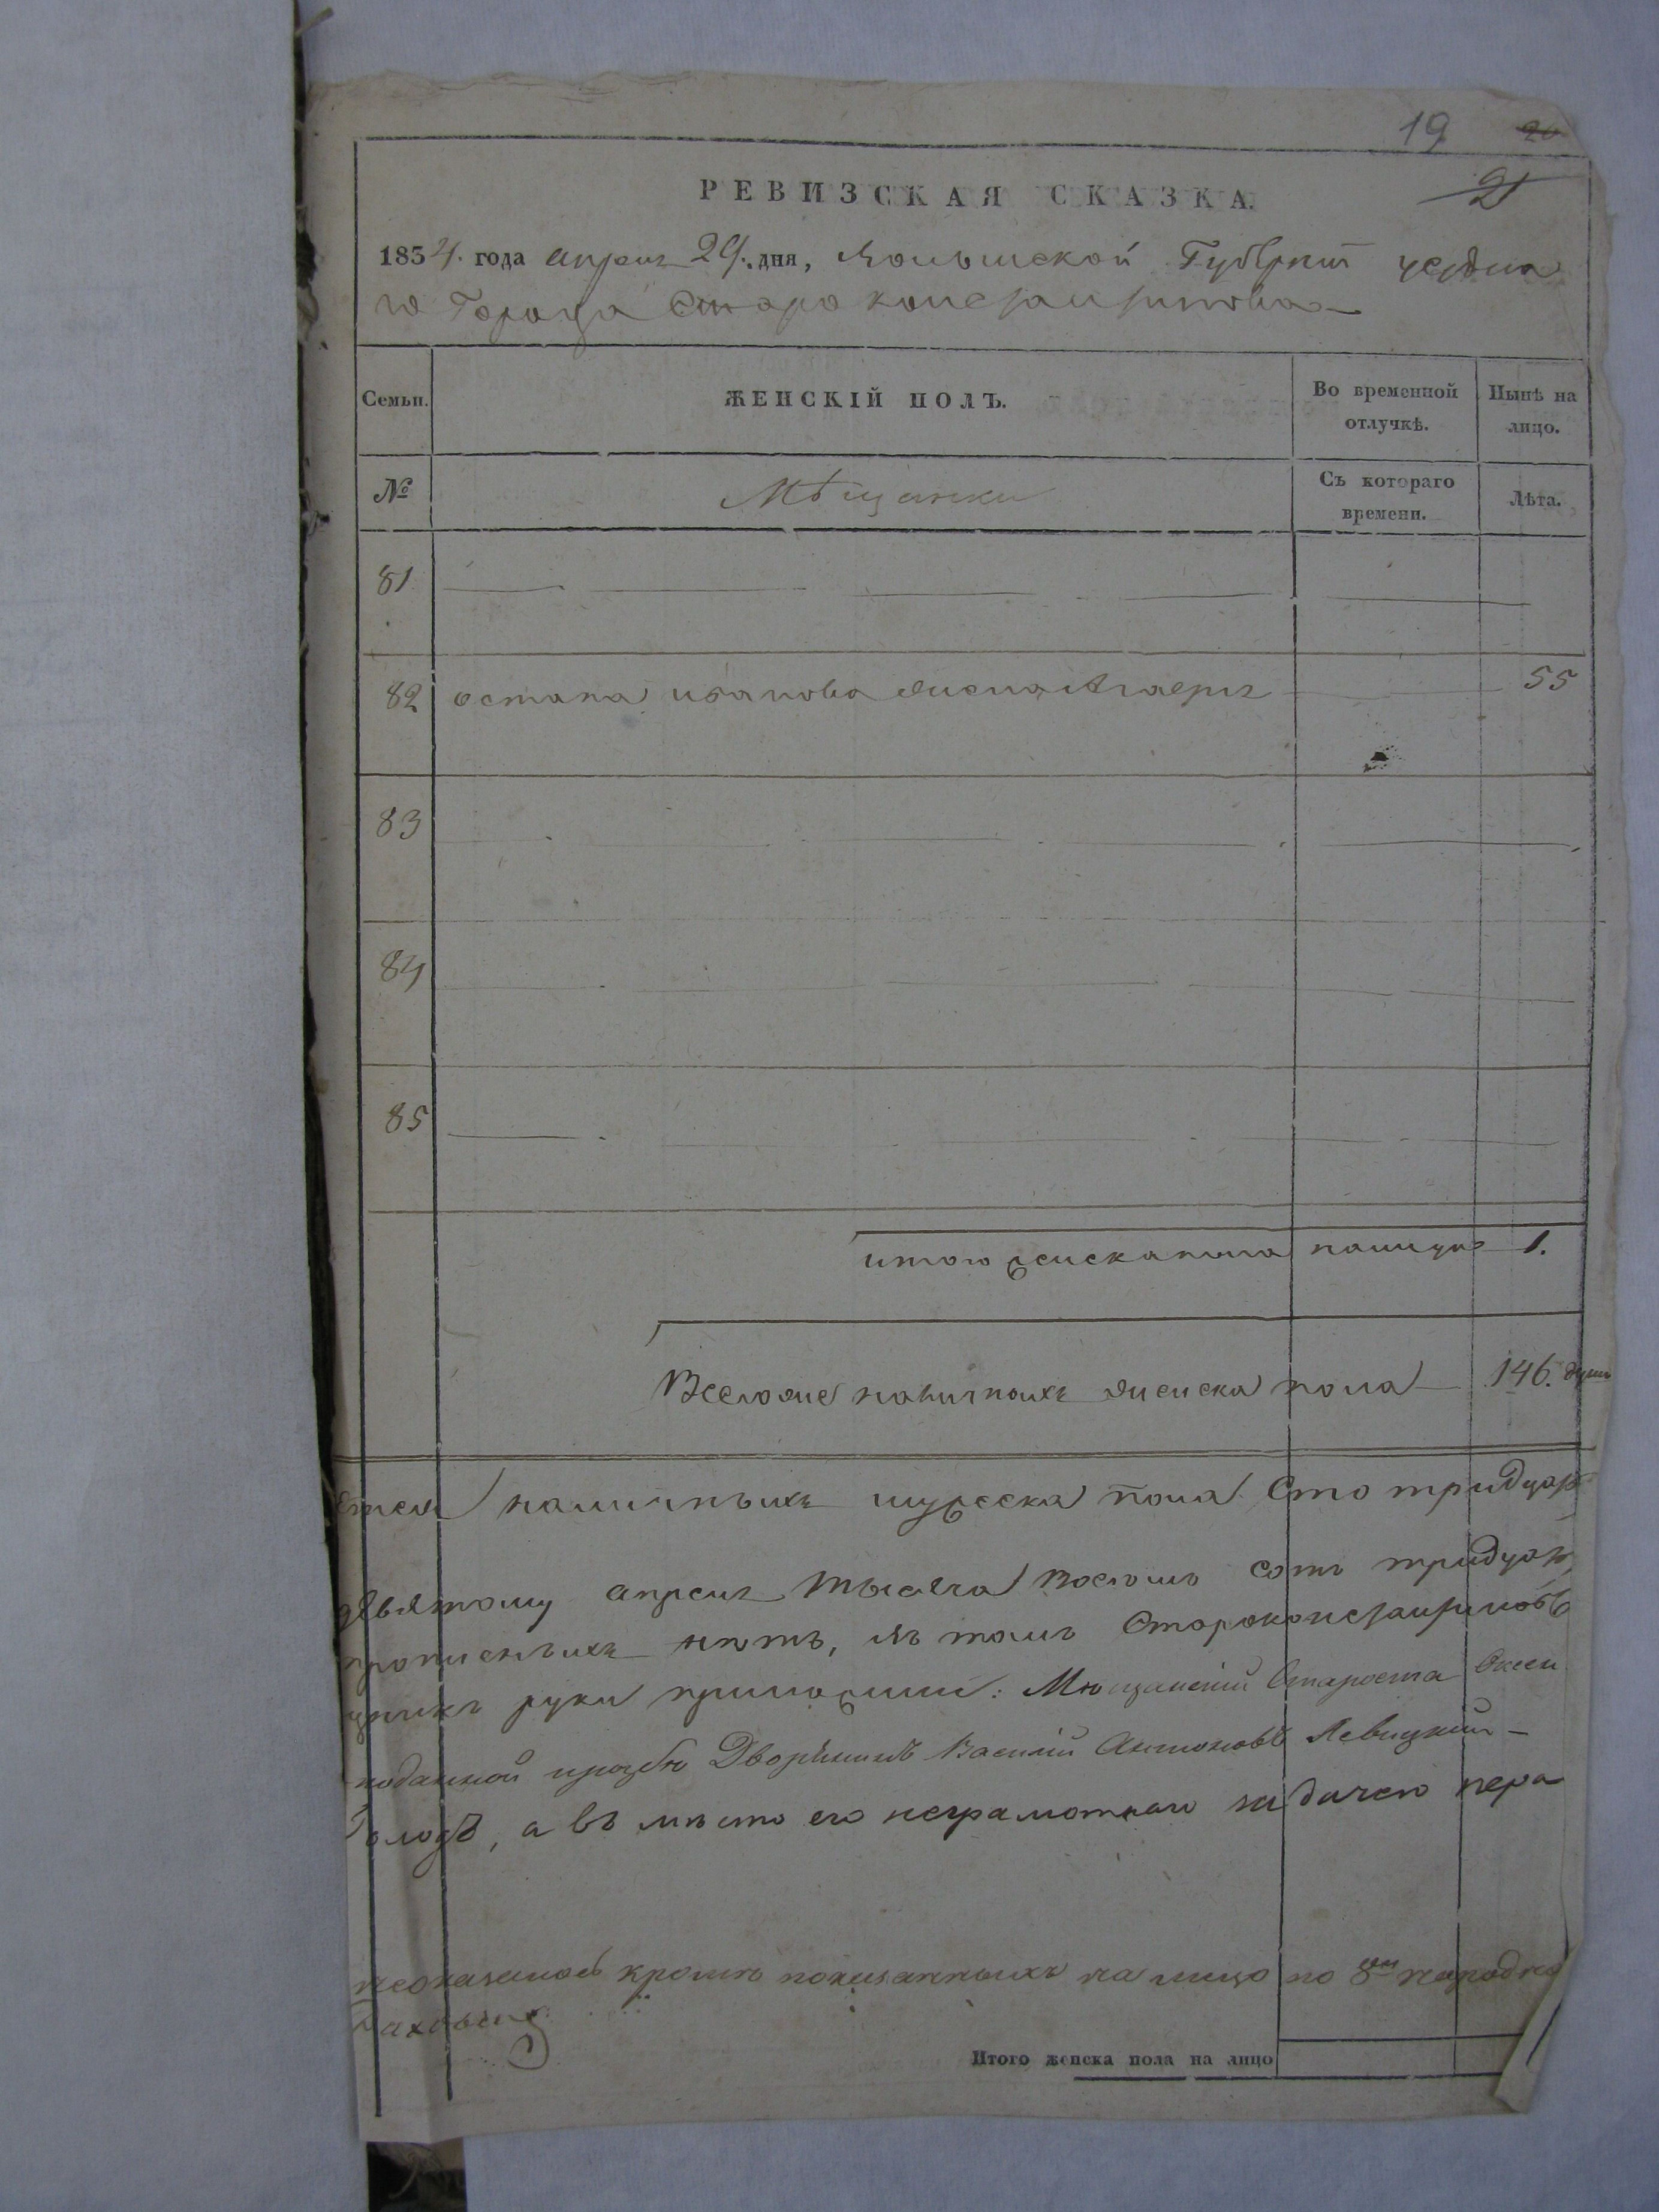 19 20
21
РЕВИЗСКАЯ СКАЗКА.
1834. года апреля 29. дня, Волынской Губернiи уездна
го Города Староконстантинова
Семьи. ЖЕНСКІЙ ПОЛЪ. Во временной отлучкѣ. Нынѣ на лицо.
№ Мѣщанки Съ котораго времени. Лѣта.
81
82 остапа иванова жена Агаерiя 55
83
84
85
итого женска пола налицо 1.
Всего же наличныхъ женска пола 146. душъ
наличныхъ мужеска пола Сто тридцать
девятому апреля тысяча Восемь сотъ тридцать
прописныхъ нѣтъ, въ томъ Староконстантиновъ
руки приложили: Мѣщанскiй Староста
поданной прозбѣ Дворянинъ Василiй Антоновъ Левицкiй
, а въ мѣсто его неграмотнаго задачею пера
неоказалось кромѣ показанныхъ на лицо по 8й народно
Итого женска пола на лицо